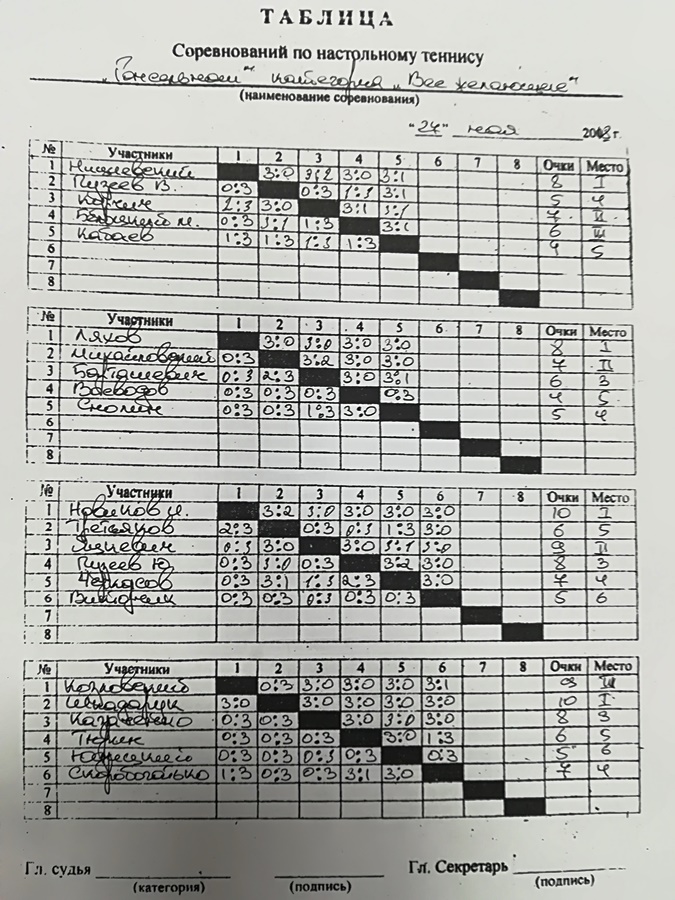 ТАБЛИЦА
Соревнований по настольному теннису
категория „Все желающие"
(наименование соревнования)
"27" мая 2018 г.
№ Участники 1 2 3 4 5 6 7 8 Очки Место
1 3:0 3:2 3:0 3:1 8 I
2 Пузеев В. 0:3 0:3 1:3 3:1 5 4
3 2:3 3:0 3:1 3:1 7 II
4 0:3 3:1 1:3 3:1 6 III
5 Кабаев 1:3 1:3 1:3 1:3 4 5
6
7
8
№ Участники 1 2 3 4 5 6 7 8 Очки Место
1 Ляхов 3:0 3:0 3:0 3:0 8 I
2 Михайловский 0:3 3:2 3:0 3:0 7 II
3 Барташевич 0:3 2:3 3:0 3:1 6 3
4 Воеводов 0:3 0:3 0:3 0:3 4 5
5 Смолин 0:3 0:3 1:3 3:0 5 4
6
7
8
№ Участники 1 2 3 4 5 6 7 8 Очки Место
1 Новиков И. 3:2 3:0 3:0 3:0 3:0 10 I
2 Третьяков 2:3 0:3 0:3 1:3 3:0 6 5
3 0:3 3:0 3:0 3:1 3:0 9 II
4 Пузеев Ю. 0:3 3:0 0:3 3:2 3:0 8 3
5 Черкасов 0:3 3:1 1:3 2:3 3:0 7 4
6 0:3 0:3 0:3 0:3 0:3 5 6
7
8
№ Участники 1 2 3 4 5 6 7 8 Очки Место
1 Козловский 0:3 3:0 3:0 3:0 3:1 9
2 Шкадарук 3:0 3:0 3:0 3:0 3:0 10 I
3 0:3 0:3 3:0 3:0 3:0 8 3
4 Тюрин 0:3 0:3 0:3 3:0 1:3 6 5
5 0:3 0:3 0:3 0:3 0:3 5 6
6 Скоробогатько 1:3 0:3 0:3 3:1 3:0 7 4
7
8
Гл. судья Гл. Секретарь
(категория) (подпись) (подпись)